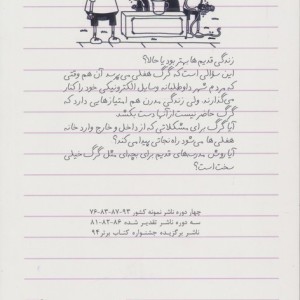 زندگی قدیم‌ها بهتر بود یا حالا؟
این سؤالی است که گرگ هفلی می‌پرسد آن هم وقتی
که مردم شهر داوطلبانه وسایل الکترونیکی خود را کنار
می‌گذارند. ولی زندگی مدرن هم امتیازهایی دارد که
گرگ حاضر نیست از آنها دست بکشد.
آیا گرگ برای مشکلاتی که از داخل و خارج وارد خانه
هفلی‌ها می‌شود راه نجاتی پیدا می‌کند؟
آیا روش مدرسه‌های قدیم برای بچه‌ای مثل گرگ خیلی
سخت است؟
چهار دوره ناشر نمونه کشور ۹۳-۸۷-۸۳-۷۶
سه دوره ناشر تقدیر شده ۸۶-۸۲-۸۱
ناشر برگزیده جشنواره کتاب برتر ۹۴